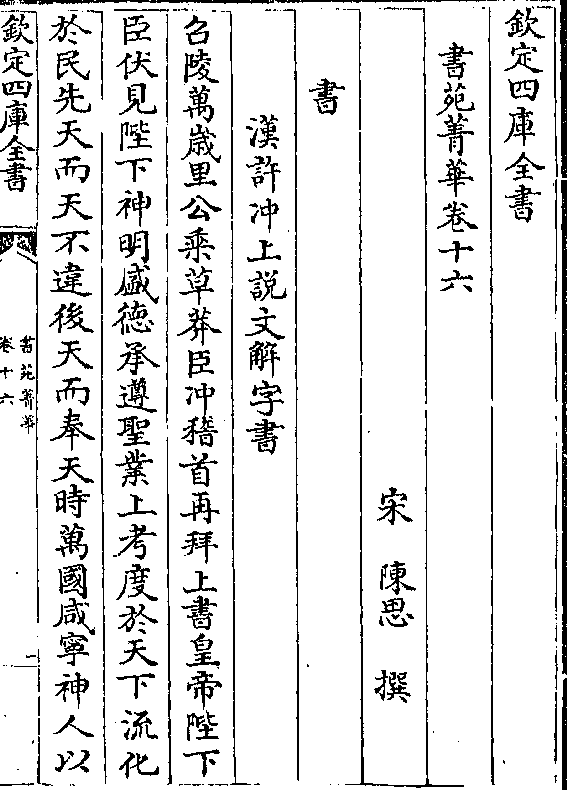 欽定四庫全書
書苑菁華卷十六
宋 陳思 撰
書
漢許沖上說文解字書
召陵萬歲里公乘草莽臣沖稽首再拜上書皇帝陛下
臣伏見陛下神明盛德承遵聖業上考度於天下流化
於民先天而天不違後天而奉天時萬國咸寧神人以
欽定四庫全書
書苑菁華
卷十六
一